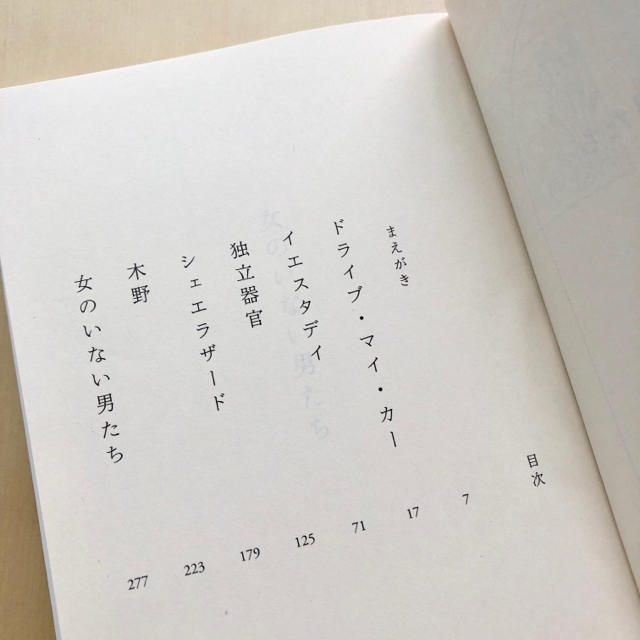 目次
まえがき 7
ドライブ・マイ・カー 17
イエスタデイ 71
独立器官 125
シェエラザード 179
木野 223
女のいない男たち 277
女のいない男たち